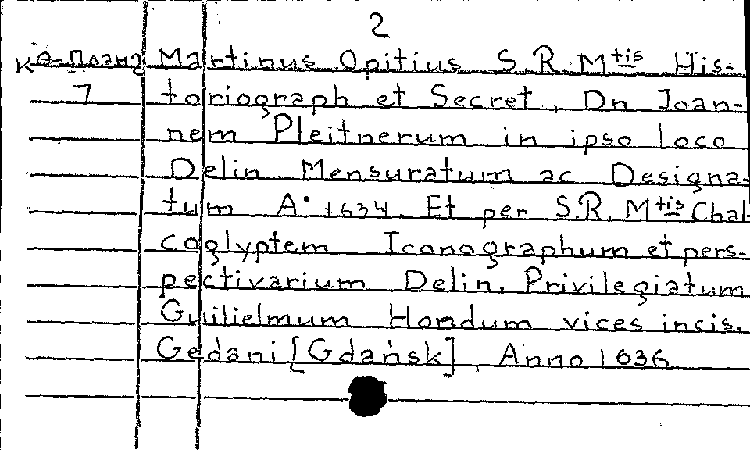 2
Ко-План2 Martinus Opitius S.R.M<sup>tis</sup> His-
7 toriograph et Secret, Dn Joan-
nem Pleitnerum in ipso loco
Delin Mensuratum ac Designa-
tum A° 1634. Et per S.R.M<sup>tis</sup> Chal
coglyptem Iconographum et pers-
pectivarium Delin. Privilegiatum
Guilielmum Hondum vices incis.
Gedani [Gdańsk], Anno 1636